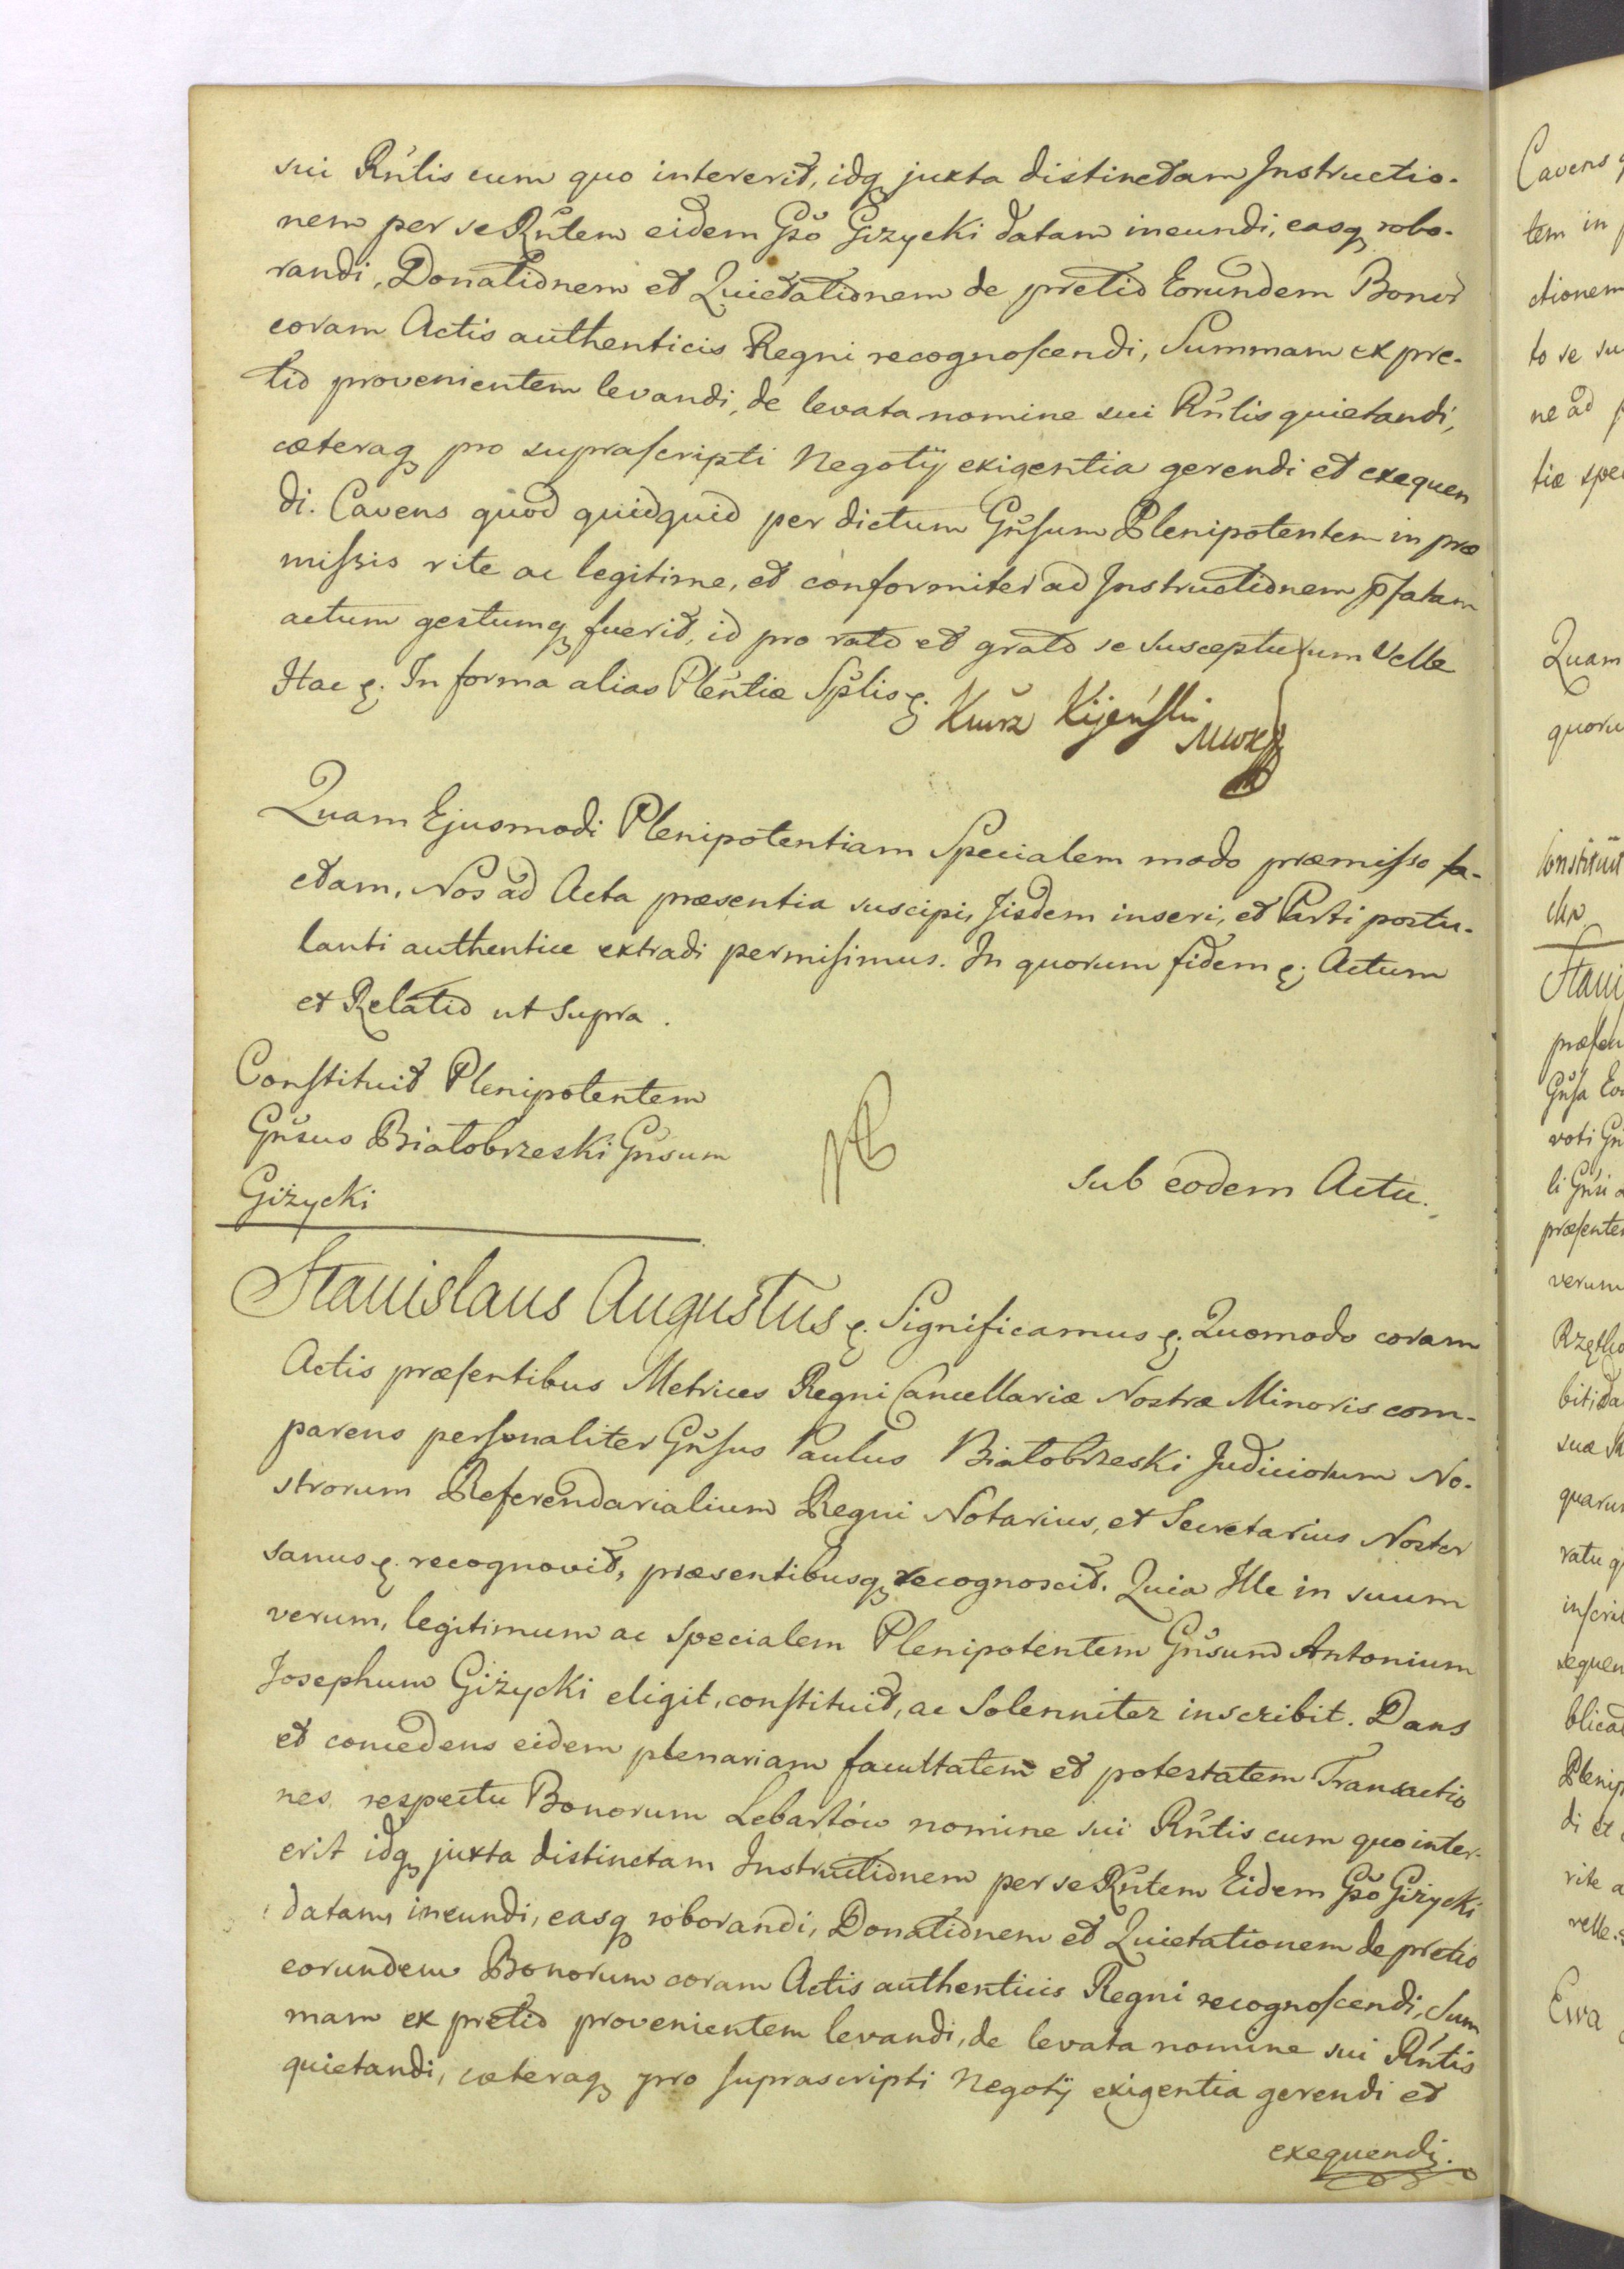 sui Rñlis cum quo intererit, idq juxta distinctam Instructio-
nem per se Rñtem eidem Gso Gizycki datam ineundi, easq robo-
randi, Donationem et Quietationem de pretio Eorundem Bonor
coram Actis authenticis Regni recognoscendi, Summam ex pre-
tio provenientem levandi, de levata nomine sui Rñlis quietandi,
cæteraq pro suprascripti Negotij exigentia gerendi et exequen
di. Cavens quod quidquid per dictum Gñsum Plenipotentem in præ
missis rite ac legitime, et conformiter ad Instructionem pfatam
actum gestumq fuerit, id pro rato et grato se suscepturum velle
Hac &. In forma alias Plentiæ Splis &.
Quam Ejusmodi Plenipotentiam Specialem modo præmisso fa-
ctam, Nos ad Acta præsentia suscipi, Iisdem inseri, et Parti postu-
lanti authentice extradi permisimus. In quorum fidem &. Actum
et Relatio ut supra.
Constituit Plenipotentem
Gñsus Białobrzeski Gñsum
Giżycki
Sub eodem Actu.
Stanislaus Augustus &. Significamus &. Quomodo coram
Actis præsentibus Metrices Regni Cancellariæ Nostræ Minoris com-
parens personaliter Gñsus Paulus Białobrzeski Judiciorum No-
strorum Referendarialium Regni Notarius, et Secretarius Noster
sanus &. recognovit, præsentibusq recognoscit. Quia Ille in suum
verum, legitimum ac specialem Plenipotentem Gñsum Antonium
Josephum Giżycki eligit, constituit, ac Solenniter inscribit. Dans
et concedens eidem plenariam facultatem et potestatem Transactio
nes respectu Bonorum Lebartów nomine sui Rñtis cum quo inter-
erit idq juxta distinctam Instructionem per se Rñtem Eidem Gso Giżycki
datam ineundi, easq roborandi, Donationem et Quietationem de pretio
eorundem Bonorum coram Actis authenticis Regni recognoscendi, Sum
mam ex pretio provenientem levandi, de levata nomine sui Rñtis
quietandi, cæteraq pro suprascripti Negotij exigentia gerendi et
exequendi.
Cavens
tem in
ctionem
to se su
ne ad
tiæ spe
Quam
quoru
Constituit
Stani
præsen
Gñsa
voti
li Gñsi
præsentem
verum
bit, da
suæ
quarum
ratu
inscri
sequen
blica
Plenip
di et
rite a
velle.
Ewa